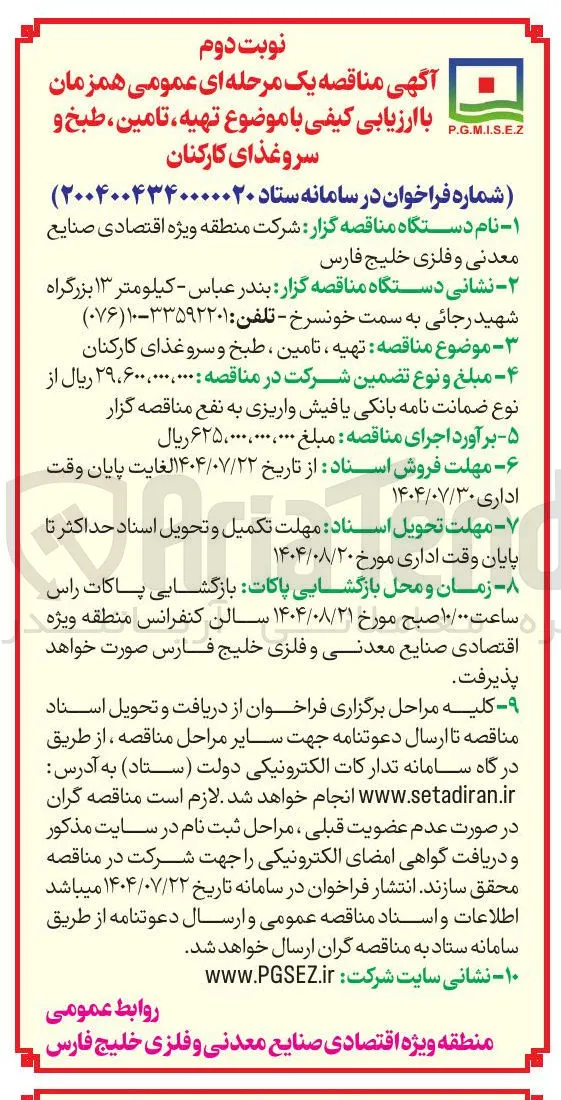 نوبت دوم
آگهی مناقصه یک مرحله ای عمومی همزمان
با ارزیابی کیفی با موضوع تهیه ، تامین ، طبخ و
سرو غذای کارکنان
P.G.M.I.S.E.Z
(شماره فراخوان در سامانه ستاد ۲۰۰۴۰۰۴۳۴۰۰۰۰۰۲۰)
۱- نام دستگاه مناقصه گزار : شرکت منطقه ویژه اقتصادی صنایع
معدنی و فلزی خلیج فارس
۲- نشانی دستگاه مناقصه گزار : بندر عباس - کیلومتر ۱۳ بزرگراه
شهید رجائی به سمت خونسرخ - تلفن: ۳۳۵۹۲۲۰۱-۱۰ (۰۷۶)
۳- موضوع مناقصه : تهیه ، تامین ، طبخ و سرو غذای کارکنان
۴- مبلغ و نوع تضمین شرکت در مناقصه : ۲۹،۶۰۰،۰۰۰،۰۰۰ ریال از
نوع ضمانت نامه بانکی یا فیش واریزی به نفع مناقصه گزار
۵- برآورد اجرای مناقصه : مبلغ ۶۲۵،۰۰۰،۰۰۰،۰۰۰ ریال
۶- مهلت فروش اسناد : از تاریخ ۱۴۰۴/۰۷/۲۲ لغایت پایان وقت
اداری ۱۴۰۴/۰۷/۳۰
۷- مهلت تحویل اسناد : مهلت تکمیل و تحویل اسناد حداکثر تا
پایان وقت اداری مورخ ۱۴۰۴/۰۸/۲۰
۸- زمان و محل بازگشایی پاکات : بازگشایی پاکات راس
ساعت ۱۰/۰۰ صبح مورخ ۱۴۰۴/۰۸/۲۱ سالن کنفرانس منطقه ویژه
اقتصادی صنایع معدنی و فلزی خلیج فارس صورت خواهد
پذیرفت.
۹- کلیه مراحل برگزاری فراخوان از دریافت و تحویل اسناد
مناقصه تا ارسال دعوتنامه جهت سایر مراحل مناقصه ، از طریق
درگاه سامانه تدارکات الکترونیکی دولت (ستاد) به آدرس :
www.setadiran.ir انجام خواهد شد .لازم است مناقصه گران
در صورت عدم عضویت قبلی ، مراحل ثبت نام در سایت مذکور
و دریافت گواهی امضای الکترونیکی را جهت شرکت در مناقصه
محقق سازند. انتشار فراخوان در سامانه تاریخ ۱۴۰۴/۰۷/۲۲ میباشد
اطلاعات و اسناد مناقصه عمومی و ارسال دعوتنامه از طریق
سامانه ستاد به مناقصه گران ارسال خواهد شد.
۱۰- نشانی سایت شرکت : www.PGSEZ.ir
روابط عمومی
منطقه ویژه اقتصادی صنایع معدنی و فلزی خلیج فارس